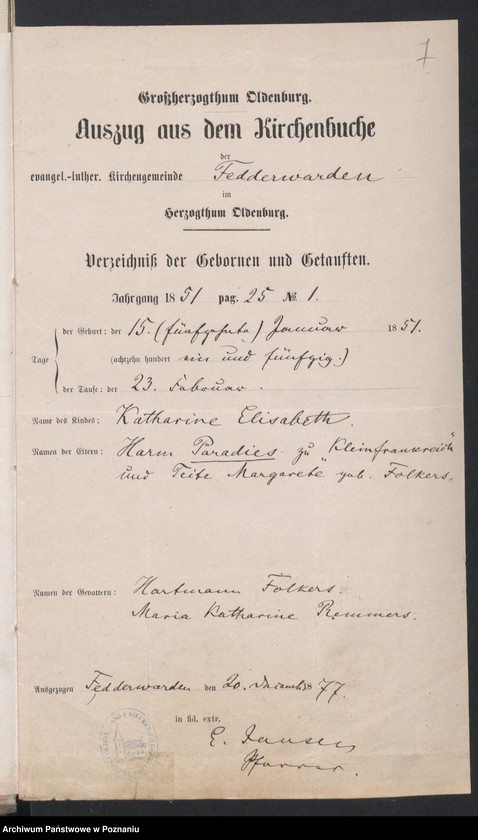 7
Großherzogthum Oldenburg.
Auszug aus dem Kirchenbuche
der
evangel.-luther. Kirchengemeinde Fedderwarden
im
Herzogthum Oldenburg.
Verzeichniß der Gebornen und Getauften.
Jahrgang 1851 pag. 25 № 1.
der Geburt: der 15. (fünfzehnte) Januar 1851.
Tage (achtzehn hundert ein und fünfzig.)
der Taufe: der 23. Februar.
Name des Kindes: Katharine Elisabeth.
Namen der Eltern: Harm Paradies zu „Kleinfrankreich“
und Teite Margarete geb. Folkers.
Namen der Gevattern: Hartmann Folkers.
Maria Katharine Remmers.
Ausgezogen Fedderwarden den 20. 1877.
in fid. extr.
E. Jansen
Pfarrer.
Archiwum Państwowe w Poznaniu